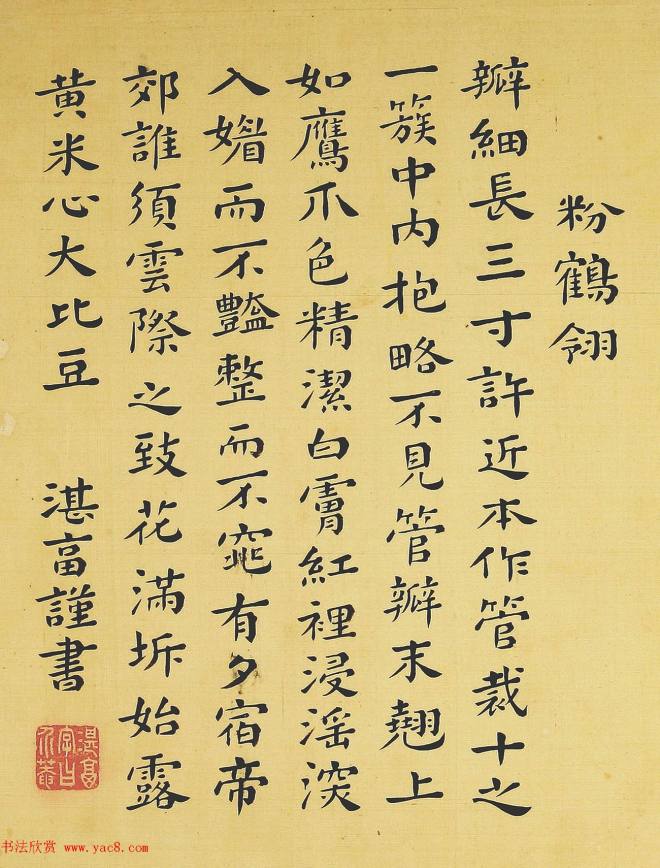 粉鶴翎
瓣細長三寸許近本作管裁十之
一簇中内抱略不見管瓣末翹上
如鷹爪色精潔白膚紅裡浸淫深
入媚而不豔整而不窕有夕宿帝
郊誰須雲際之致花滿坼始露
黄米心大比豆 湛富謹書
书法欣赏 www.yac8.com